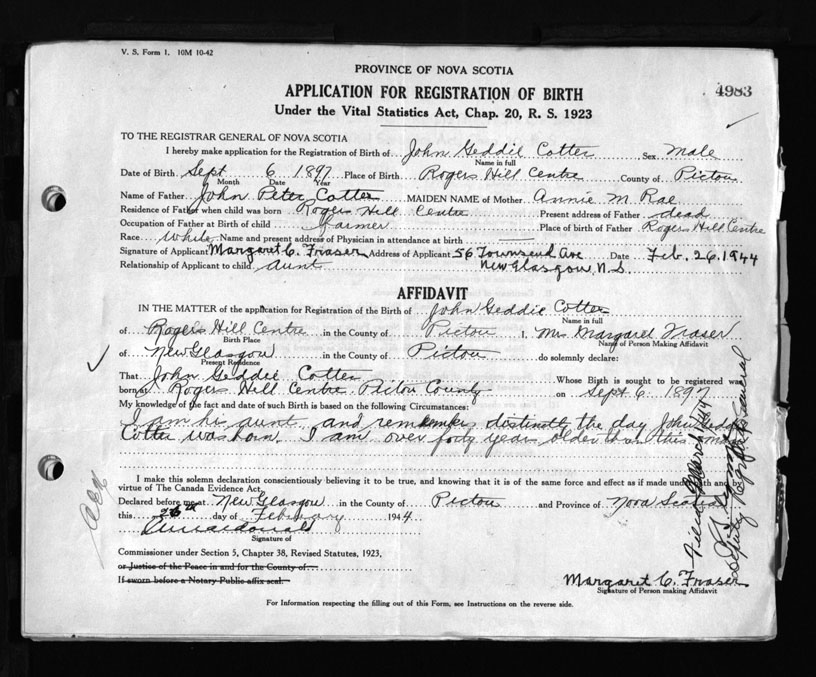 V. S. Form 1. 10M 10-42
PROVINCE OF NOVA SCOTIA
APPLICATION FOR REGISTRATION OF BIRTH 4983
Under the Vital Statistics Act, Chap. 20, R. S. 1923
TO THE REGISTRAR GENERAL OF NOVA SCOTIA
I hereby make application for the Registration of Birth of John Geddie Cotter Sex Male
Name in full
Date of Birth Sept 6 1897 Place of Birth Rogers Hill Centre County of Pictou
Month Date Year
Name of Father John Peter Cotter MAIDEN NAME of Mother Annie M. Rae
Residence of Father when child was born Rogers Hill Centre Present address of Father dead
Occupation of Father at Birth of child farmer Place of birth of Father Rogers Hill Centre
Race White Name and present address of Physician in attendance at birth
Signature of Applicant Margaret C. Fraser Address of Applicant 56 Townsend Ave Date Feb. 26. 1944
Relationship of Applicant to child aunt New Glasgow, N.S.
AFFIDAVIT
IN THE MATTER of the application for Registration of the Birth of John Geddie Cotter
Name in full
of Rogers Hill Centre in the County of Pictou I, Mrs Margaret Fraser
Birth Place Name of Person Making Affidavit
of New Glasgow in the County of Pictou do solemnly declare:
Present Residence
That John Geddie Cotter Whose Birth is sought to be registered was
born at Rogers Hill Centre Pictou County on Sept 6 1897
My knowledge of the fact and date of such Birth is based on the following Circumstances:
I am his aunt and remember distinctly the day John Geddie
Cotter was born. I am over forty years older than this
I make this solemn declaration conscientiously believing it to be true, and knowing that it is of the same force and effect as if made under oath and
virtue of The Canada Evidence Act.
Declared before me at New Glasgow in the County of Pictou and Province of Nova Scotia
this 26th day of February 1944
Signature of
Commissioner under Section 5, Chapter 38, Revised Statutes, 1923,
or Justice of the Peace in and for the County of
If sworn before a Notary Public affix seal.
Margaret C. Fraser
Signature of Person making Affidavit
For Information respecting the filling out of this Form, see Instructions on the reverse side.
Deputy Registrar General